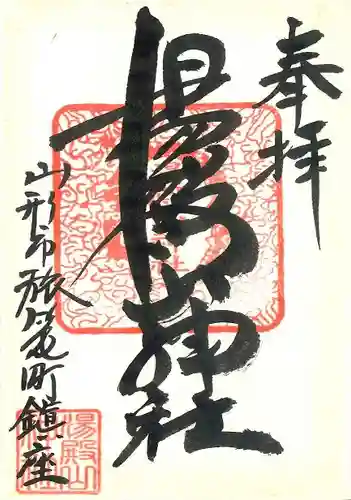 奉拝
湯殿山神社
山形市旅篭町鎮座
湯殿山